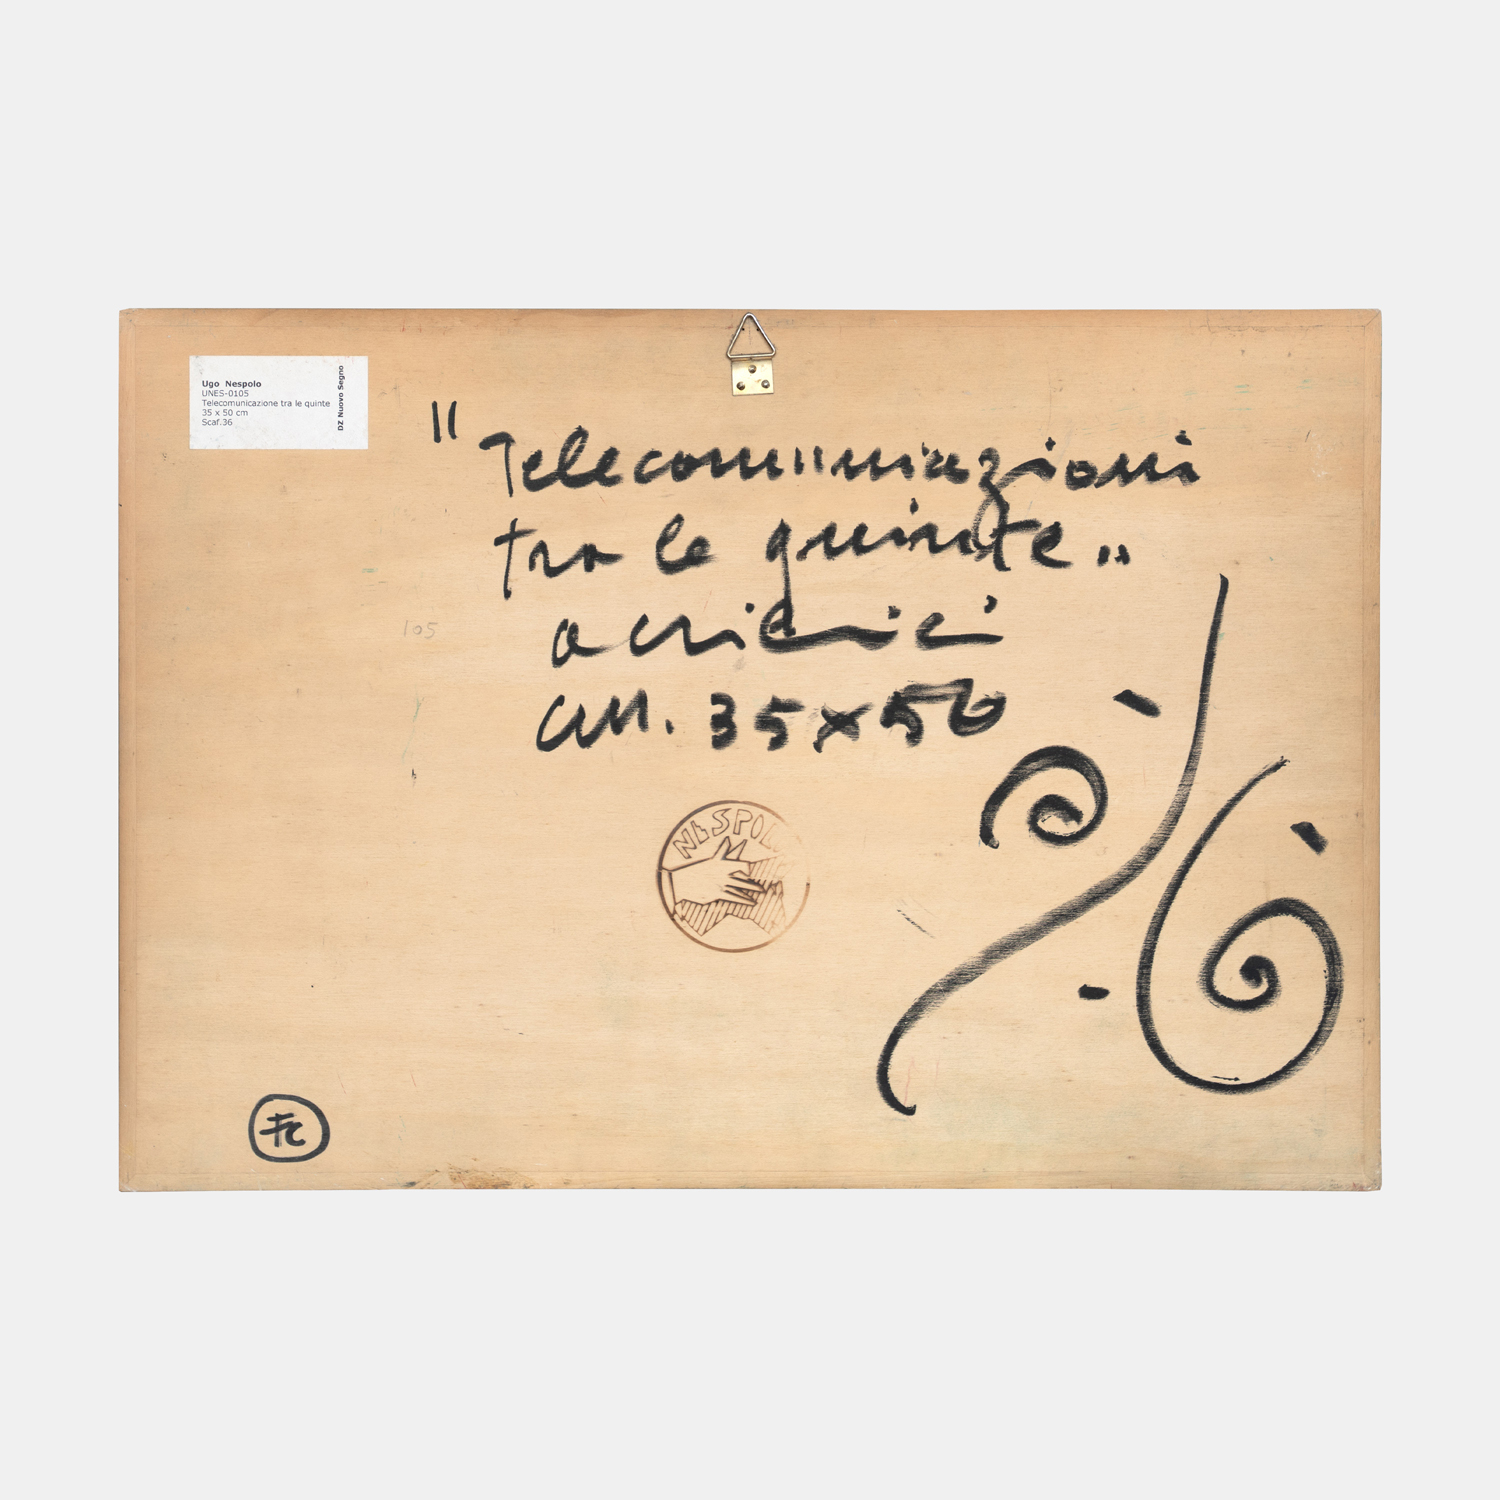 Ugo Nespolo
UNES-0105
Telecomunicazione tra le quinte
35 x 50 cm
Scaf.36
DZ Nuovo Segno
"Telecomunicazioni
tra le quinte"
acrilici
cm. 35x50
105
NESPOLO